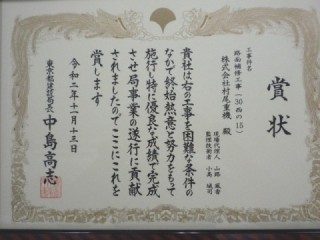 賞状
工事件名
路面補修工事(30西の15)
株式会社村尾重機 殿
現場代理人 山路 風香
監理技術者 小高 城司
貴社は右の工事を困難な条件の
なかで終始熱意と努力をもって
施行し特に優良な成績で完成
させ局事業の遂行に貢献
されましたのでここにこれを
賞します
令和二年十一月十三日
東京都建設局長 中島高志